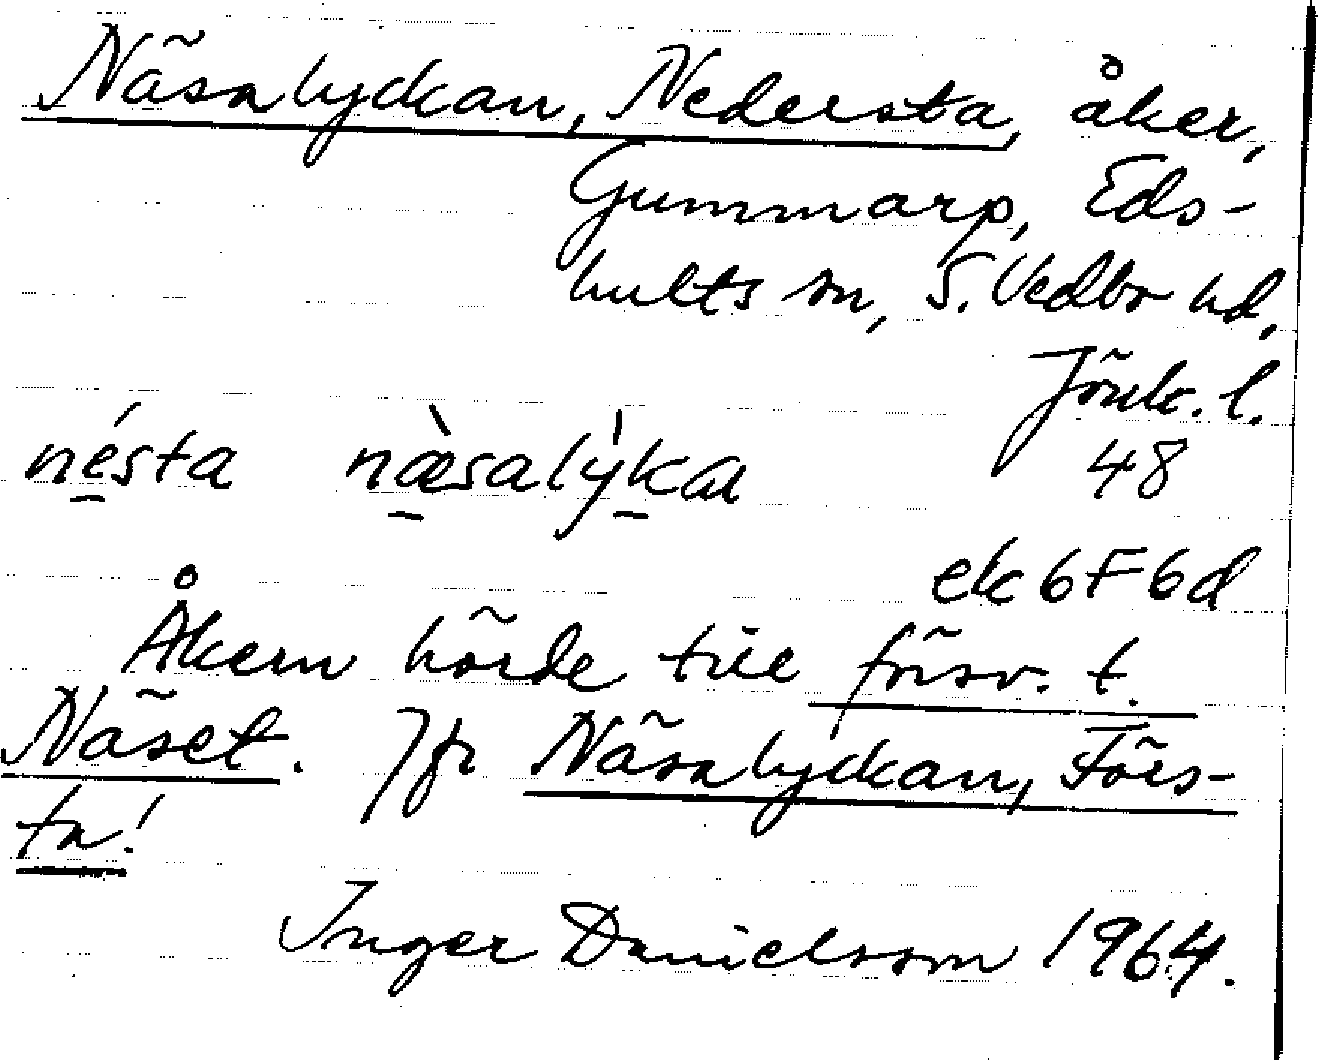 Näsalyckan, Nedersta, åker,
Gummarp, Eds-
hults sn, S. Vedbo hd,
Jönk. l.
nésta næ̀salỳka 48
ek 6F6d
Åkern hörde till försv. t.
Näset. Jfr Näsalyckan, Förs-
ta!
Inger Danielsson 1964.